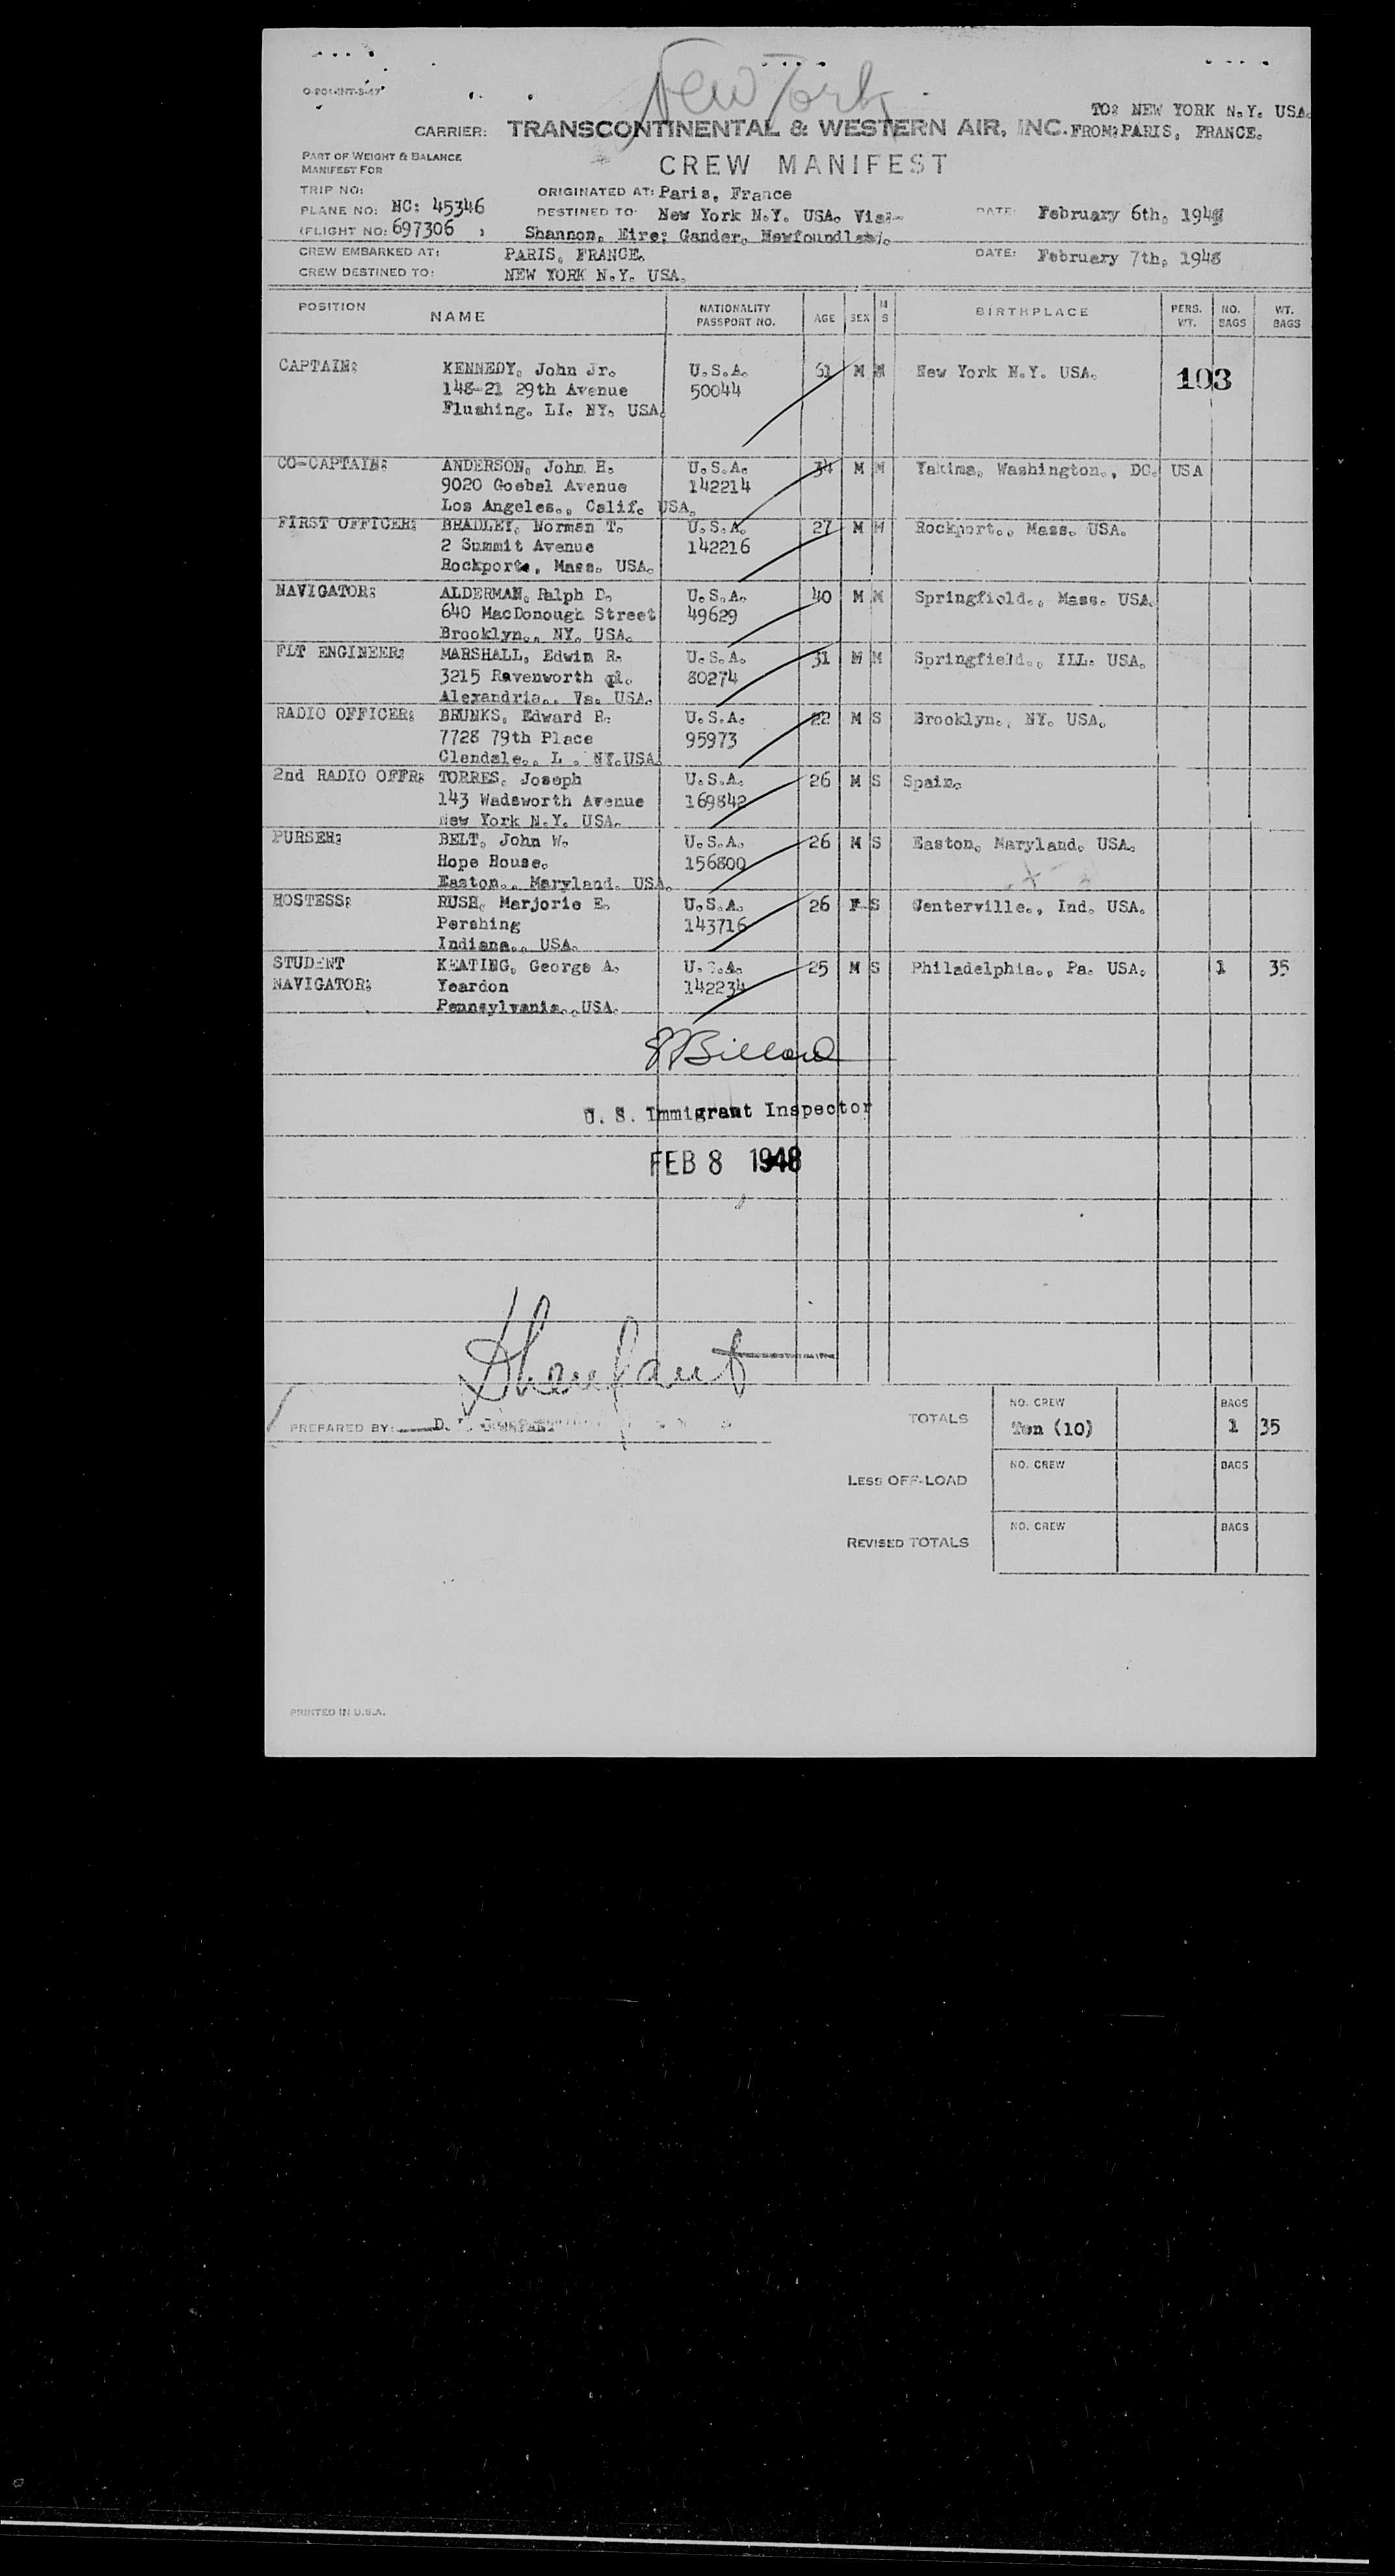 New York
O-201-INT-3-47
TO: NEW YORK N.Y. USA.
CARRIER: TRANSCONTINENTAL & WESTERN AIR, INC. FROM: PARIS, FRANCE.
PART OF WEIGHT & BALANCE
MANIFEST FOR
CREW MANIFEST
TRIP NO: ORIGINATED AT: Paris, France
PLANE NO: NC: 45346 DESTINED TO: New York N.Y. USA. Via:- DATE: February 6th, 1948
(FLIGHT NO: 697306 , Shannon, Eire; Gander, Newfoundland.
CREW EMBARKED AT: PARIS, FRANCE. DATE: February 7th, 1948
CREW DESTINED TO: NEW YORK N.Y. USA.
POSITION NAME NATIONALITY PASSPORT NO. AGE SEX M S BIRTHPLACE PERS. WT. NO. BAGS WT. BAGS
CAPTAIN: KENNEDY, John Jr. U.S.A. M M New York N.Y. USA. 103
148-21 29th Avenue 50044
Flushing. LI. NY. USA.
CO-CAPTAIN: ANDERSON, John H. U.S.A. 34 M M Yakima, Washington., DC. USA
9020 Goebel Avenue 142214
Los Angeles., Calif. USA.
FIRST OFFICER: BRADLEY, Norman T. U.S.A. 27 M M Rockport., Mass. USA.
2 Summit Avenue 142216
Rockport., Mass. USA.
NAVIGATOR: ALDERMAN, Ralph D. U.S.A. 40 M M Springfield., Mass. USA.
640 MacDonough Street 49629
Brooklyn., NY. USA.
FLT ENGINEER: MARSHALL, Edwin R. U.S.A. 31 M M Springfield., ILL. USA.
3215 Ravenworth pl. 80274
Alexandria., Va. USA.
RADIO OFFICER: BRUNKS, Edward R. U.S.A. 22 M S Brooklyn., NY. USA.
7728 79th Place 95973
Glendale., L . NY.USA.
2nd RADIO OFFR: TORRES, Joseph U.S.A. 26 M S Spain.
143 Wadsworth Avenue 169842
New York N.Y. USA.
PURSER: BELT, John W. U.S.A. 26 M S Easton, Maryland, USA.
Hope House. 156800
Easton., Maryland. USA.
HOSTESS: RUSH, Marjorie E. U.S.A. 26 F S Centerville., Ind. USA.
Pershing 143716
Indiana., USA.
STUDENT KEATING, George A. U.S.A. 25 M S Philadelphia., Pa. USA. 1 35
NAVIGATOR: Yeardon 142234
Pennsylvania., USA.
U. S. Immigrant Inspector
FEB 8 1948
PREPARED BY: D.
TOTALS NO. CREW Ten (10) BAGS 1 35
LESS OFF-LOAD NO. CREW BAGS
REVISED TOTALS NO. CREW BAGS
PRINTED IN U.S.A.